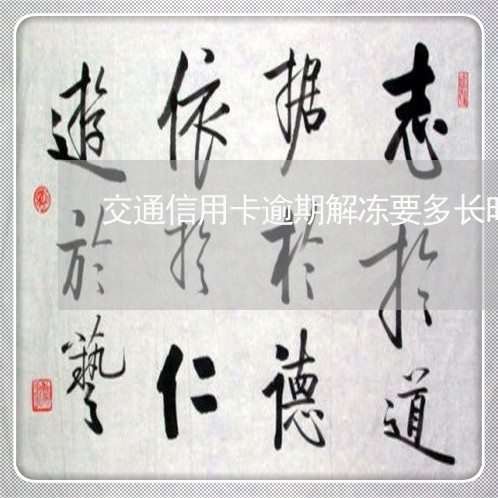 志於道
据於德
依於仁
遊於藝
交通信用卡逾期解冻要多长